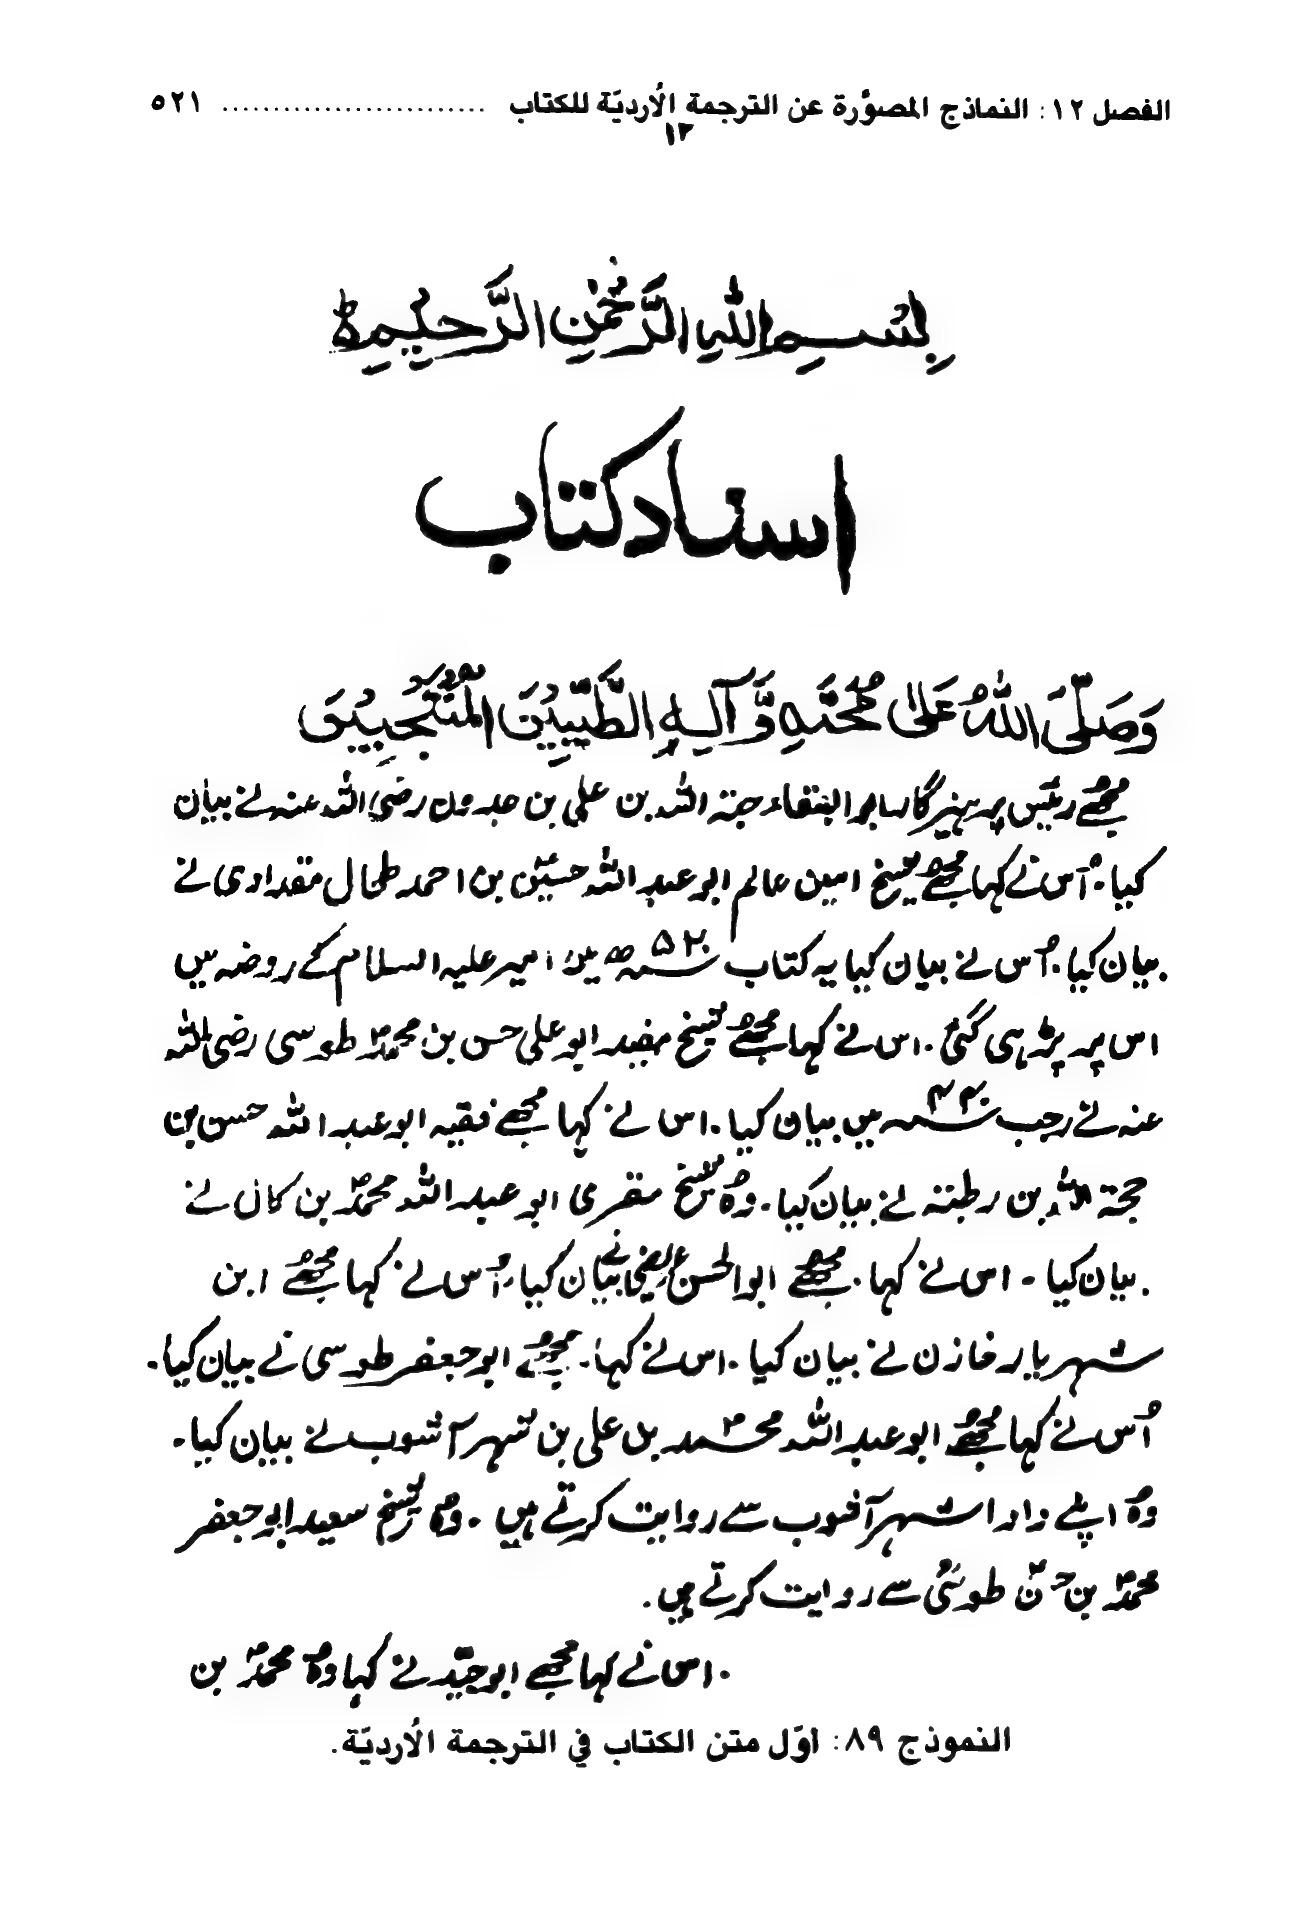 الفصل ١٢: النماذج المصوَّرة عن الترجمة الأُرديّة للكتاب ........................ ٥٢١
١٢
بِسْمِ اللهِ الرَّحْمٰنِ الرَّحِيْمِ
اسناد کتاب
وَصَلَّى اللهُ عَلٰى مُحَمَّدٍ وَّ آلِهِ الطَّيِّبِيْنَ الْمُنْتَجَبِيْنَ
مجھے رئیس پرہیزگار ابو البقاء حبۃ اللہ بن علی بن حمدون رضی اللہ عنہ نے بیان
کیا۔ اُس نے کہا مجھے شیخ امین عالم ابو عبد اللہ حسین بن احمد طحال مقدادی نے
بیان کیا۔ اُس نے بیان کیا یہ کتاب ۵۲۰ھ میں امیر علیہ السلام کے روضہ میں
اس پر پڑھی گئی۔ اس نے کہا مجھے شیخ مفید ابو علی حسن بن محمد طوسی رضی اللہ
عنہ نے رجب ۴۴۰ میں بیان کیا۔ اس نے کہا مجھے فقیہ ابو عبد اللہ حسن بن
حجتہ اللہ بن رطبتہ نے بیان کیا۔ وہ شیخ مقری ابو عبد اللہ محمد بن کال نے
بیان کیا۔ اس نے کہا۔ مجھے ابو الحسن عریضی نے بیان کیا، اُس نے کہا مجھے ابن
شہریار خازن نے بیان کیا۔ اس نے کہا۔ مجھے ابو جعفر طوسی نے بیان کیا۔
اُس نے کہا مجھے ابو عبد اللہ محمد بن علی بن شہر آشوب نے بیان کیا۔
وہ اپنے دادا شہر آشوب سے روایت کرتے ہیں۔ وہ شیخ سعید ابو جعفر
محمد بن حسن طوسی سے روایت کرتے ہیں۔
اس نے کہا مجھے ابو جید نے کہا وہ محمد بن
النموذج ٨٩: أوّل متن الكتاب في الترجمة الأُرديّة.